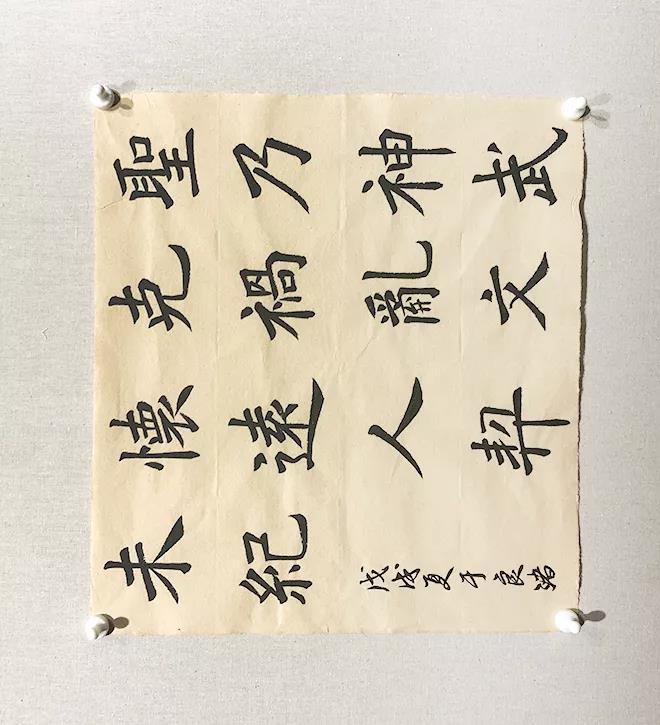 聖乃神武
克禍亂文
懷遠人
未紀
戊戌夏于良渚